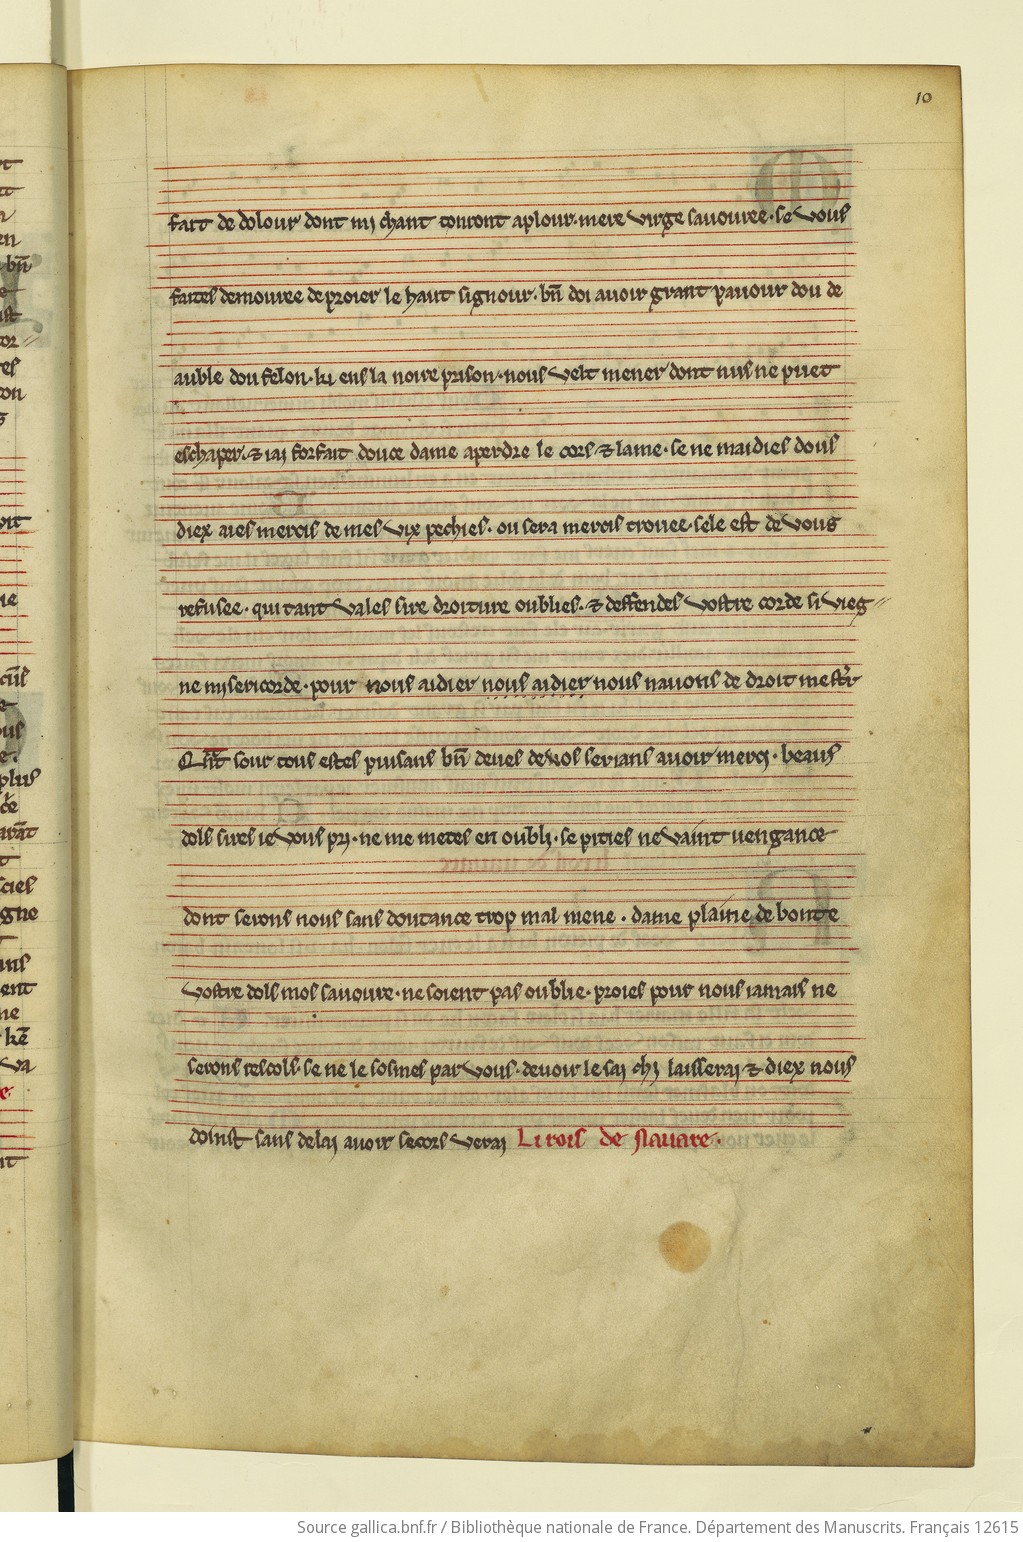 10
fait de dolour dont mj chant tonront aplour. mere virge sauouree. se vous
faites demouree de proier le haut signour. bn̄ doi auoir grant pauour dou de
auble dou felon. ki ens la noire prison. nous velt mener dont nus ne puet
eschaper. ⁊ iai forfait douce dame aperdre le cors ⁊ lame. se ne maidies dous
diex aies mercis de mes vix pechies. ou sera mercis trouee. sele est de vous
refusee. qui tant vales sire droiture oublies. ⁊ deffendes vostre corde si vieg
ne misericorde. pour nous aidier nous aidier nous nauons de droit mest̄r
Qn̄t sour tous estes puisans bn̄ deues de vos serians auoir mercj. beaus
dols sires ie vous prj. ne me metes en oublj. se pities ne vaint uengance
dont serons nous sans doutance trop mal mene. dame plaine de bonte
vostre dols mos sauoure. ne soient pas oublie. proies pour nous iamais ne
serons rescols. se ne le somes par vous. deuoir le saj chj laisseraj ⁊ diex nous
doinst sans delaj auoir secors veraj Li rois de nauare.
Source gallica.bnf.fr / Bibliothèque nationale de France. Département des Manuscrits. Français 12615